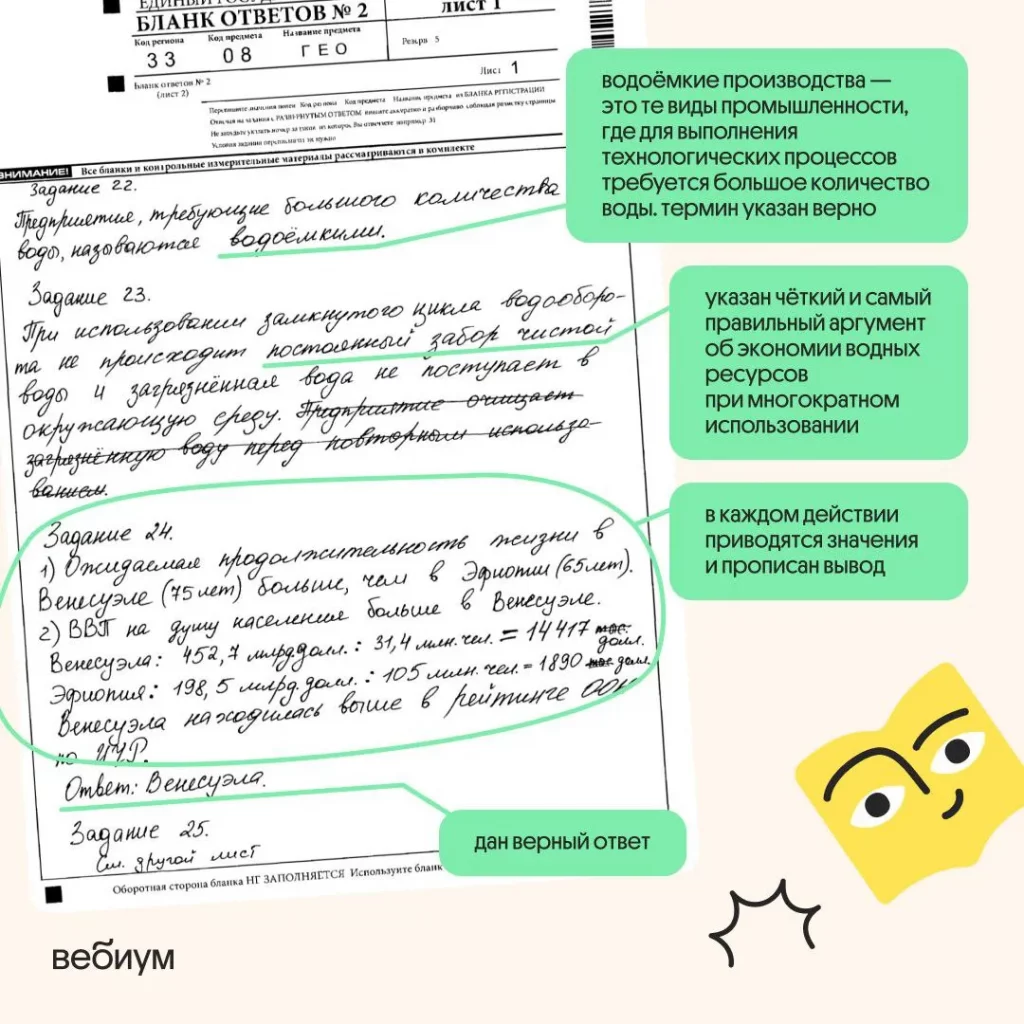 ЕДИНЫЙ ГОСУД
БЛАНК ОТВЕТОВ № 2
лист 1
Код региона Код предмета Название предмета
33 08 ГЕО
Резерв 5
Бланк ответов № 2
(лист 2)
Лист 1
Перепишите значения полей Код региона Код предмета Название предмета из БЛАНКА РЕГИСТРАЦИИ
ВНИМАНИЕ! Все бланки и контрольные измерительные материалы рассматриваются в комплекте
Задание 22.
Предприятия, требующие большого количества
воды, называются водоёмкими.
Задание 23.
При использовании замкнутого цикла водооборо-
та не происходит постоянный забор чистой
воды и загрязнённая вода не поступает в
окружающую среду. Предприятие очищает
загрязнённую воду перед повторным использо-
ванием.
Задание 24.
1) Ожидаемая продолжительность жизни в
Венесуэле (75 лет) больше, чем в Эфиопии (65 лет).
2) ВВП на душу населения больше в Венесуэле.
Венесуэла: 452,7 млрд.долл. : 31,4 млн.чел. = 14417 тыс. долл.
Эфиопия: 198,5 млрд.долл. : 105 млн.чел. = 1890 тыс. долл.
Венесуэла находилась выше в рейтинге ООН
по ИЧР.
Ответ: Венесуэла.
Задание 25.
См. другой лист
Оборотная сторона бланка НЕ ЗАПОЛНЯЕТСЯ Используйте бланк
водоёмкие производства —
это те виды промышленности,
где для выполнения
технологических процессов
требуется большое количество
воды. термин указан верно
указан чёткий и самый
правильный аргумент
об экономии водных
ресурсов
при многократном
использовании
в каждом действии
приводятся значения
и прописан вывод
дан верный ответ
вебиум